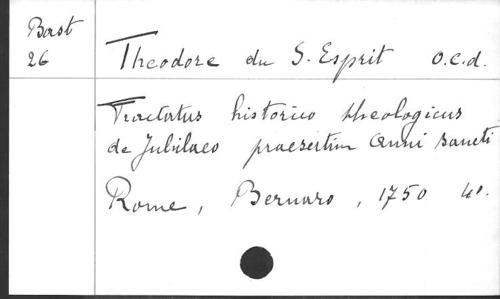 Bast
26
Theodore du S. Esprit o.c.d.
Tractatus historico theologicus
de Jubilaeo praesertim Anni sancti
Rome, Bernaro, 1750 4º.